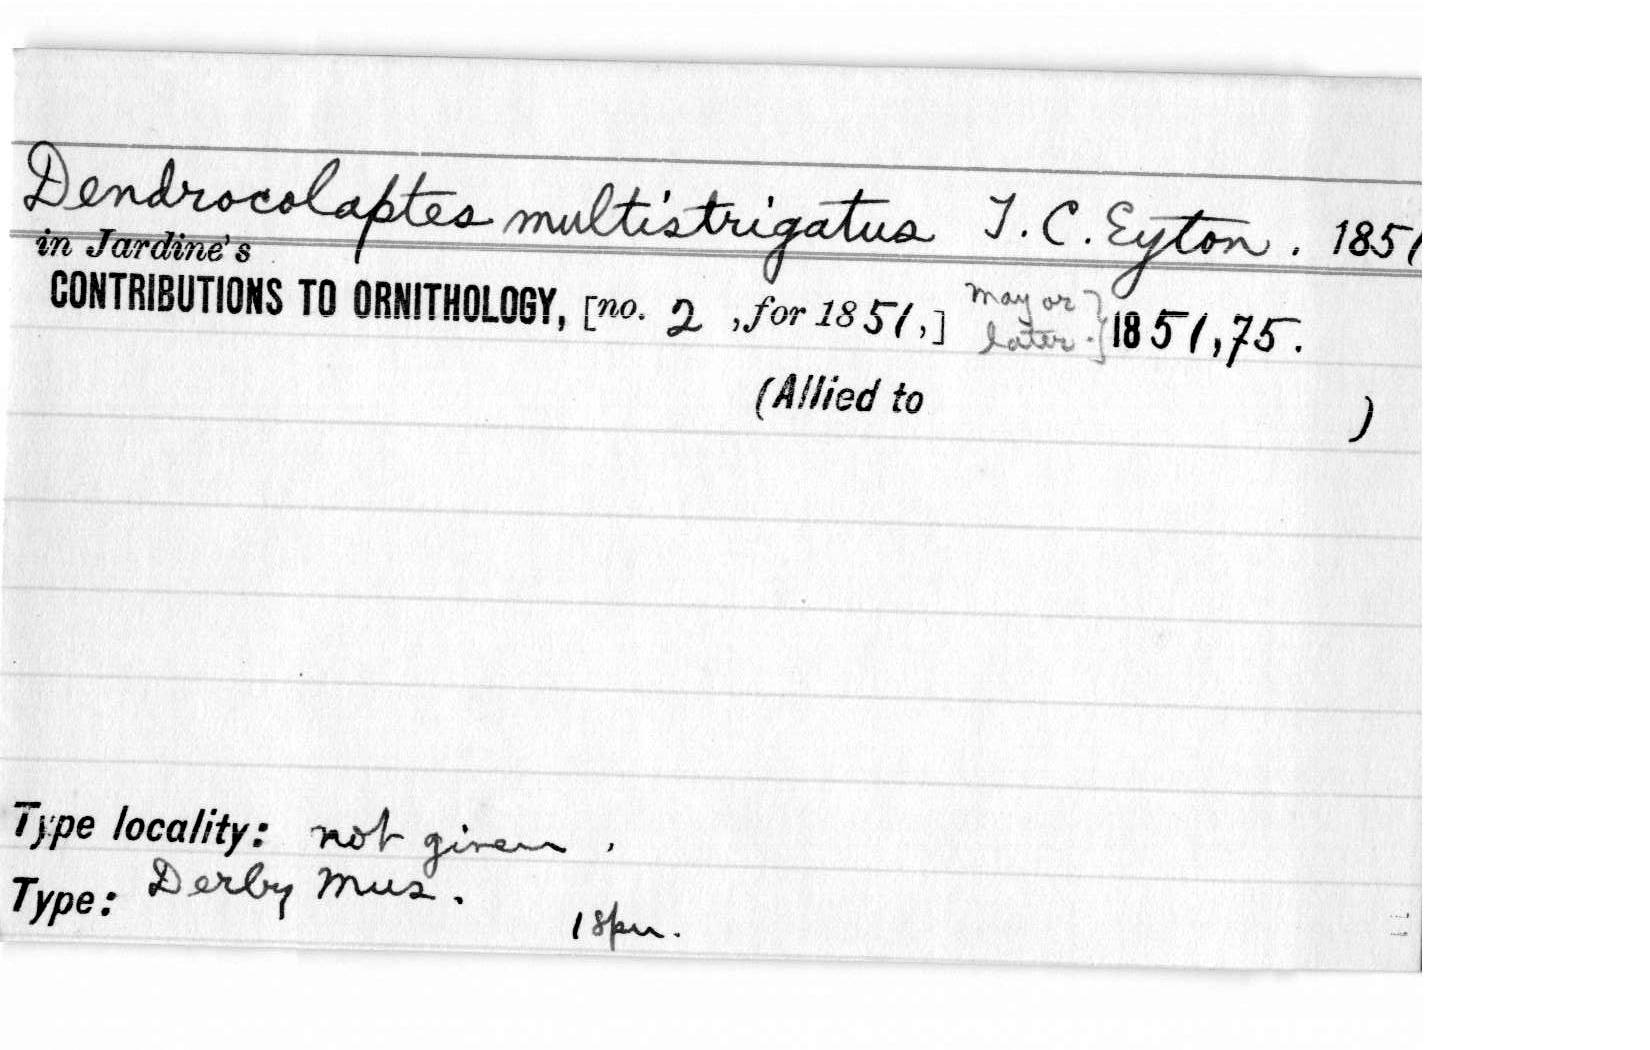 Dendrocolaptes multistrigatus T. C. Eyton. 1851
in Jardine's
CONTRIBUTIONS TO ORNITHOLOGY, [no. 2 , for 1851,] May or later.} 1851, 75.
(Allied to )
Type locality: not given.
Type: Derby Mus.
1 spn.